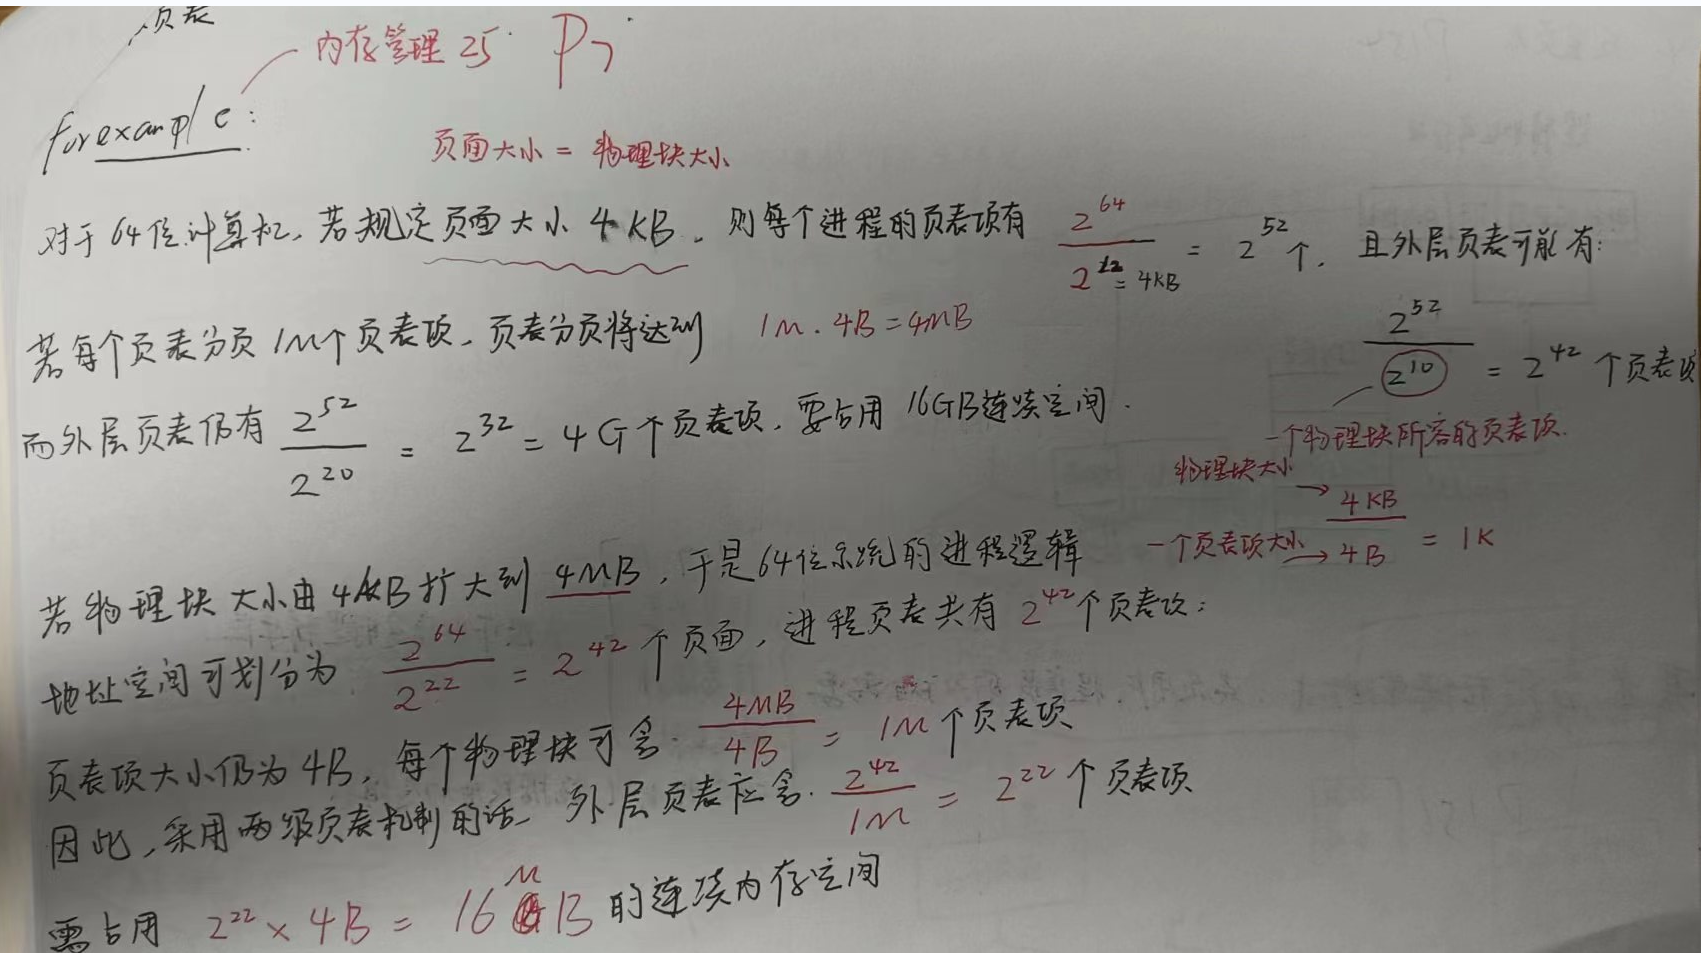 页表
内存管理 25 P7
for example:
页面大小 = 物理块大小
对于 64位计算机, 若规定页面大小 4KB, 则每个进程的页表项有 2^64 / 2^12=4KB = 2^52 个, 且外层页表可能有:
2^52 / 2^10 = 2^42 个页表项
一个物理块所容的页表项.
物理块大小 → 4KB
一个页表项大小 → 4B = 1K
若每个页表分页 1M个页表项, 页表分页将达到 1M · 4B = 4MB
而外层页表仍有 2^52 / 2^20 = 2^32 = 4G个页表项, 要占用 16GB连续空间.
若物理块大小由 4KB 扩大到 4MB, 于是64位系统的进程逻辑
地址空间可划分为 2^64 / 2^22 = 2^42 个页面, 进程页表共有 2^42 个页表项;
页表项大小仍为 4B, 每个物理块可含 4MB / 4B = 1M 个页表项
因此, 采用两级页表机制的话, 外层页表应含 2^42 / 1M = 2^22 个页表项
需占用 2^22 × 4B = 16MB 的连续内存空间